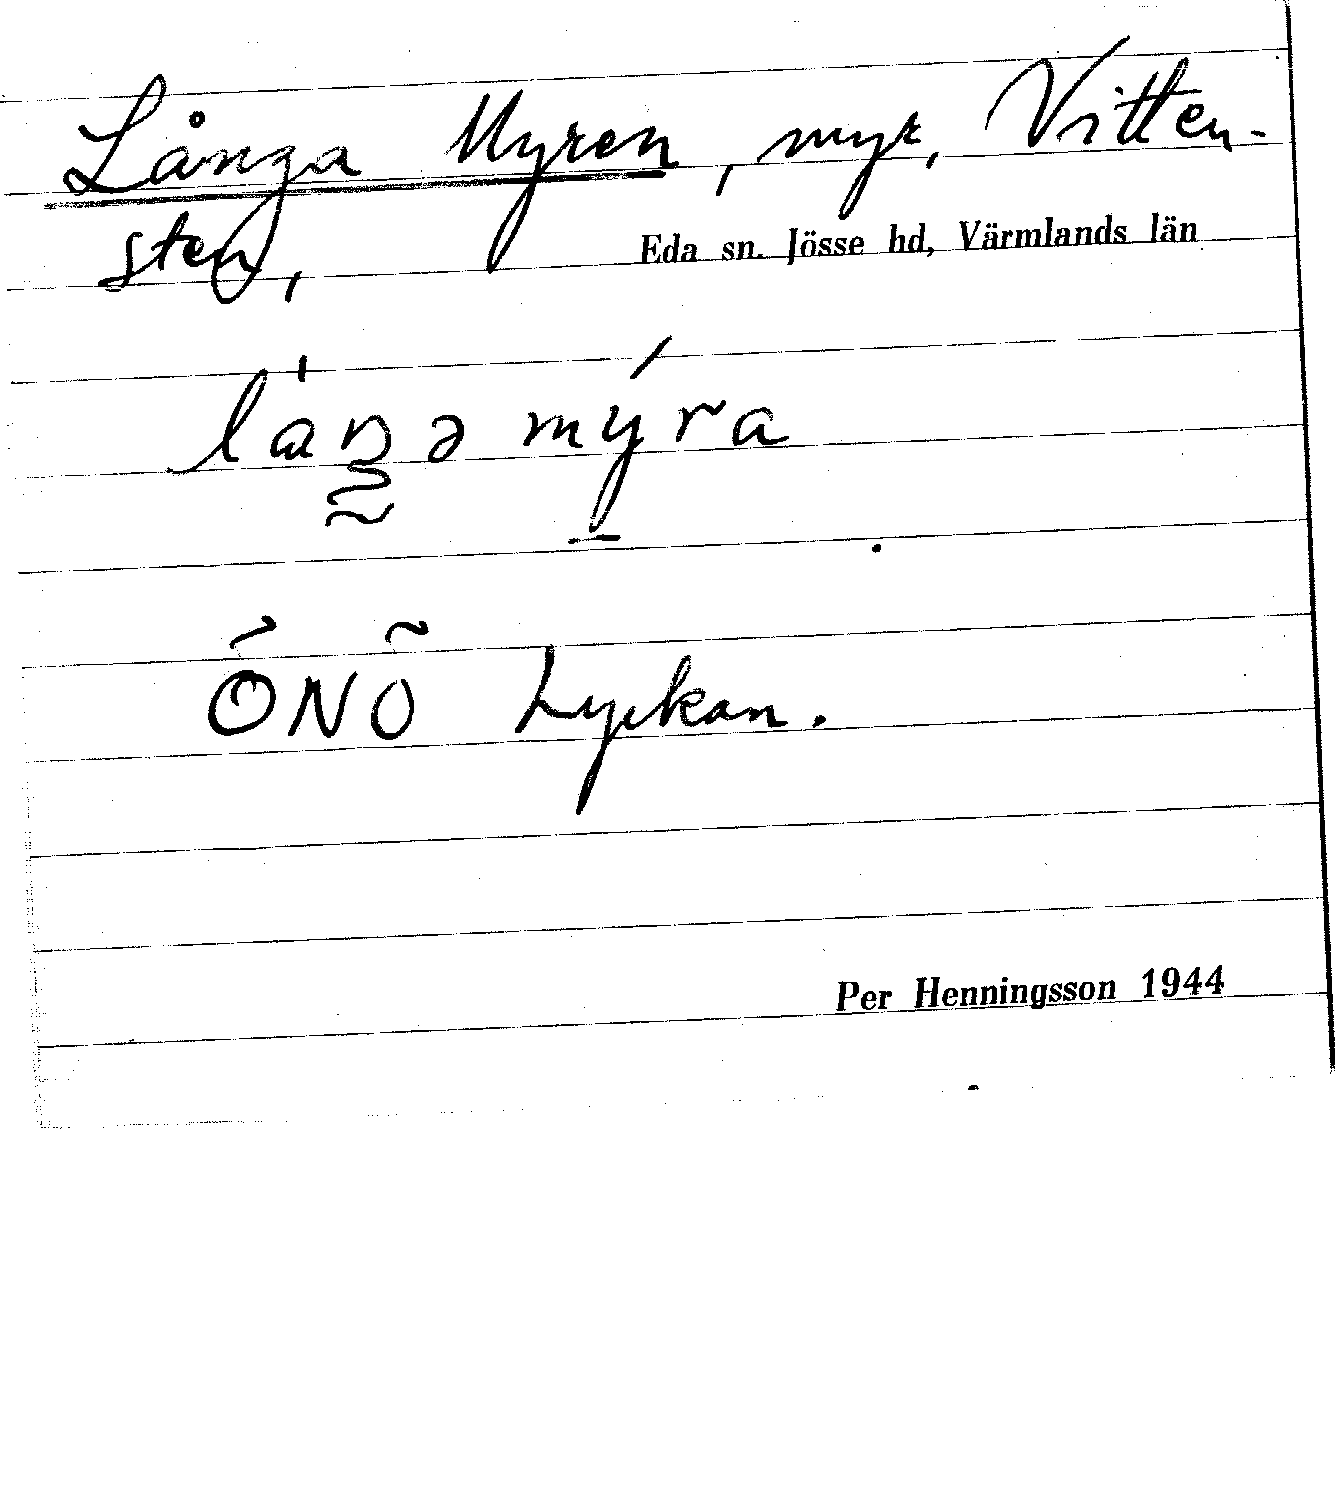 Långa Myren, myr, Vitten-
sten,
Eda sn. Jösse hd, Värmlands län
laŋə mýra
ÖNÖ Lyckan.
Per Henningsson 1944